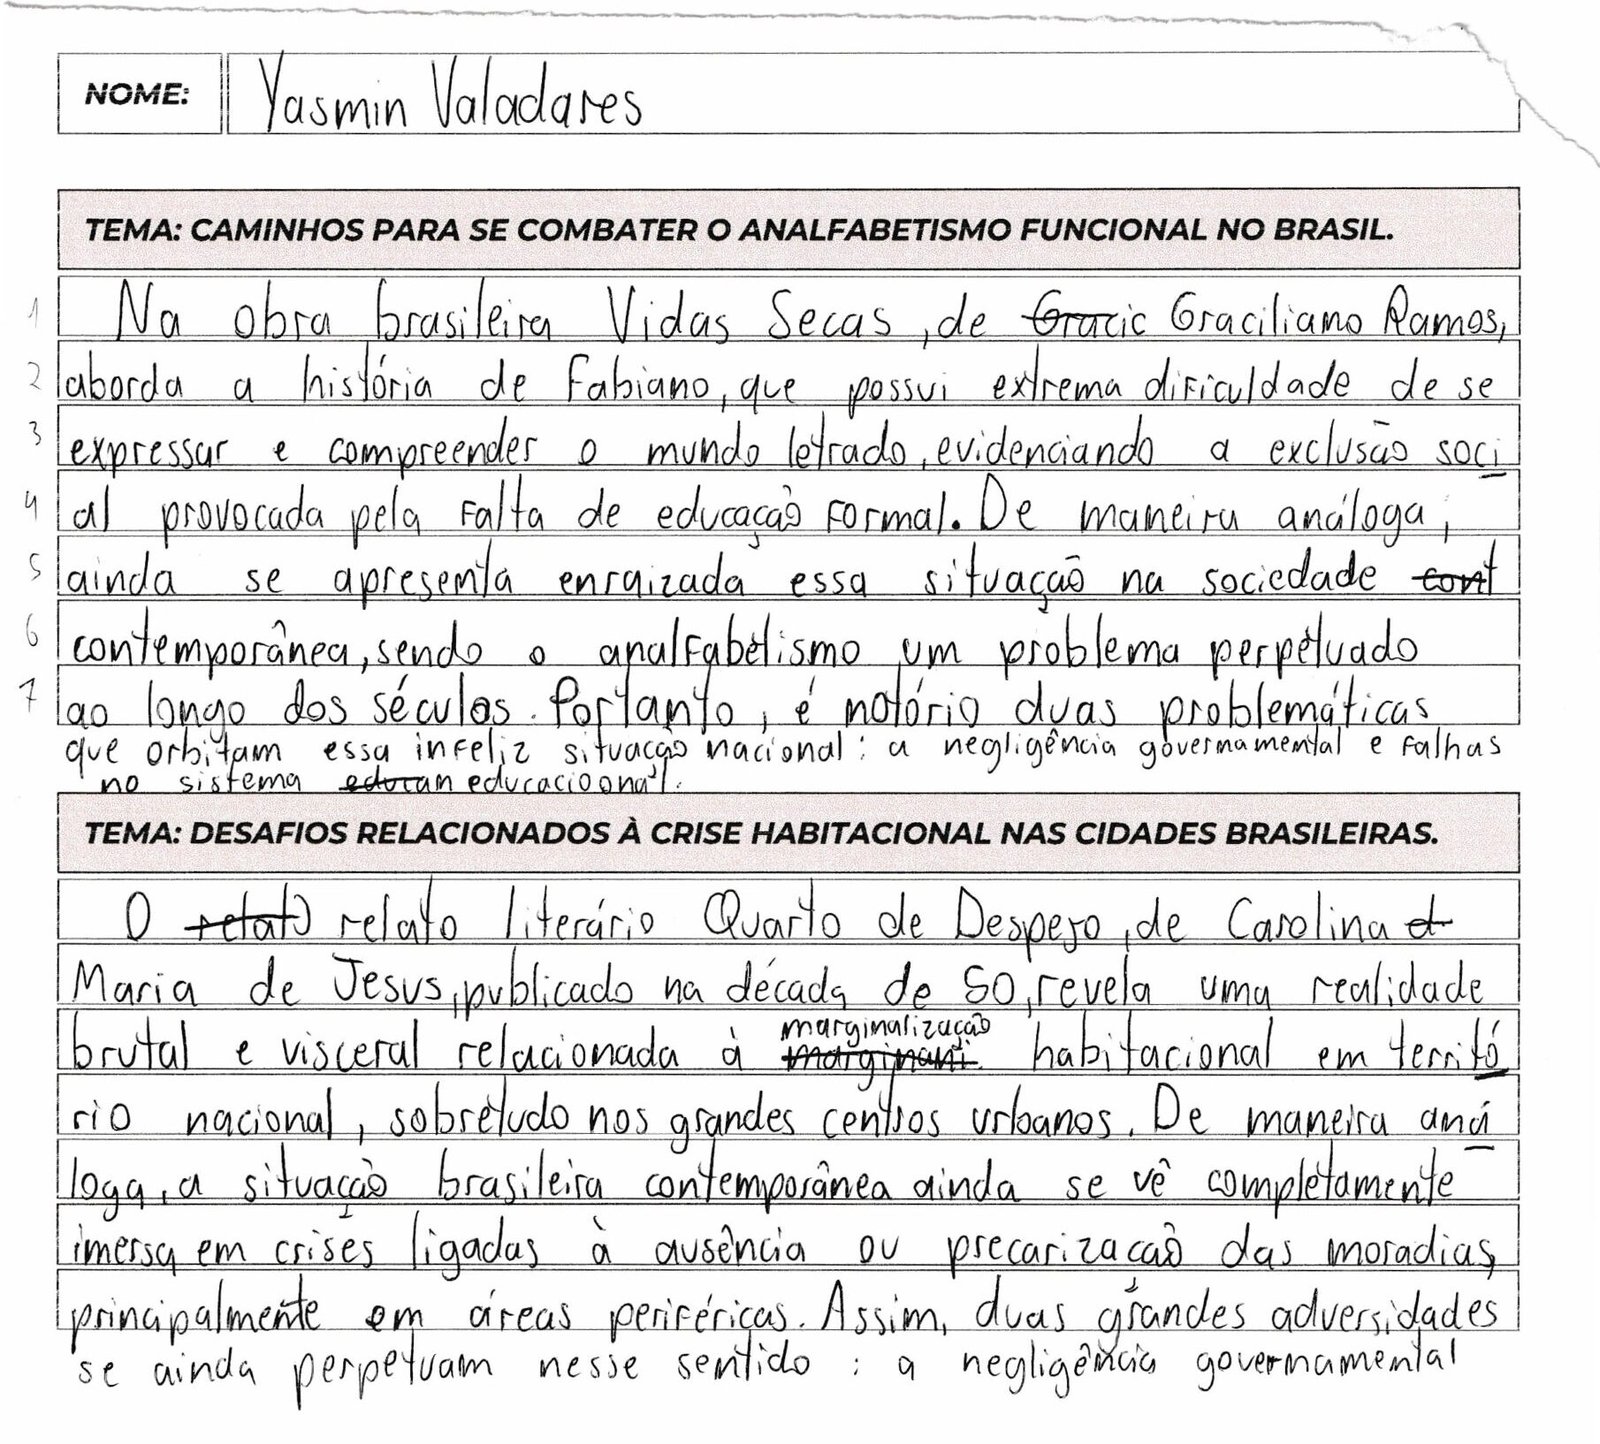 NOME: Yasmin Valadares
TEMA: CAMINHOS PARA SE COMBATER O ANALFABETISMO FUNCIONAL NO BRASIL.
1 Na obra brasileira Vidas Secas, de Gracic Graciliano Ramos,
2 aborda a história de Fabiano, que possui extrema dificuldade de se
3 expressar e compreender o mundo letrado, evidenciando a exclusão soci
4 al provocada pela falta de educação formal. De maneira análoga,
5 ainda se apresenta enraizada essa situação na sociedade cont
6 contemporânea, sendo o analfabetismo um problema perpetuado
7 ao longo dos séculos. Portanto, é notório duas problemáticas
que orbitam essa infeliz situação nacional: a negligência governamental e falhas
no sistema educan educacioonal.
TEMA: DESAFIOS RELACIONADOS À CRISE HABITACIONAL NAS CIDADES BRASILEIRAS.
O relato relato literário Quarto de Despejo, de Carolina d
Maria de Jesus, publicado na década de 50, revela uma realidade
marginalização
brutal e visceral relacionada à marginani habitacional em territó
rio nacional, sobretudo nos grandes centros urbanos. De maneira aná
loga, a situação brasileira contemporânea ainda se vê completamente
imersa em crises ligadas à ausência ou precarizacão das moradias,
principalmente em áreas periféricas. Assim, duas grandes adversidades
se ainda perpetuam nesse sentido: a negligência governamental